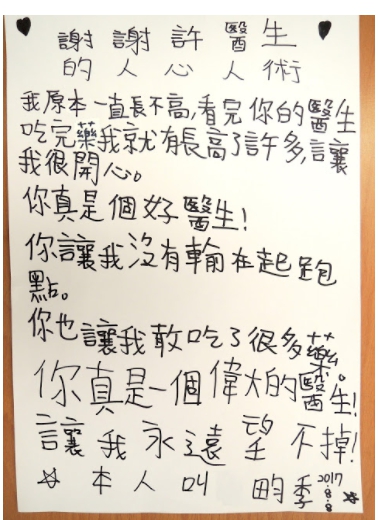 ♥ 謝謝許醫生 ♥
的人心人術
我原本一直長不高,看完你的醫生
吃完藥我就有長高了許多,讓
我很開心。
你真是個好醫生!
你讓我沒有輸在起跑
點。
你也讓我敢吃了很多藥。
你真是一個偉大的醫生!
讓我永遠望不掉!
☆ 本人叫 畇季 2017.8.8 ☆